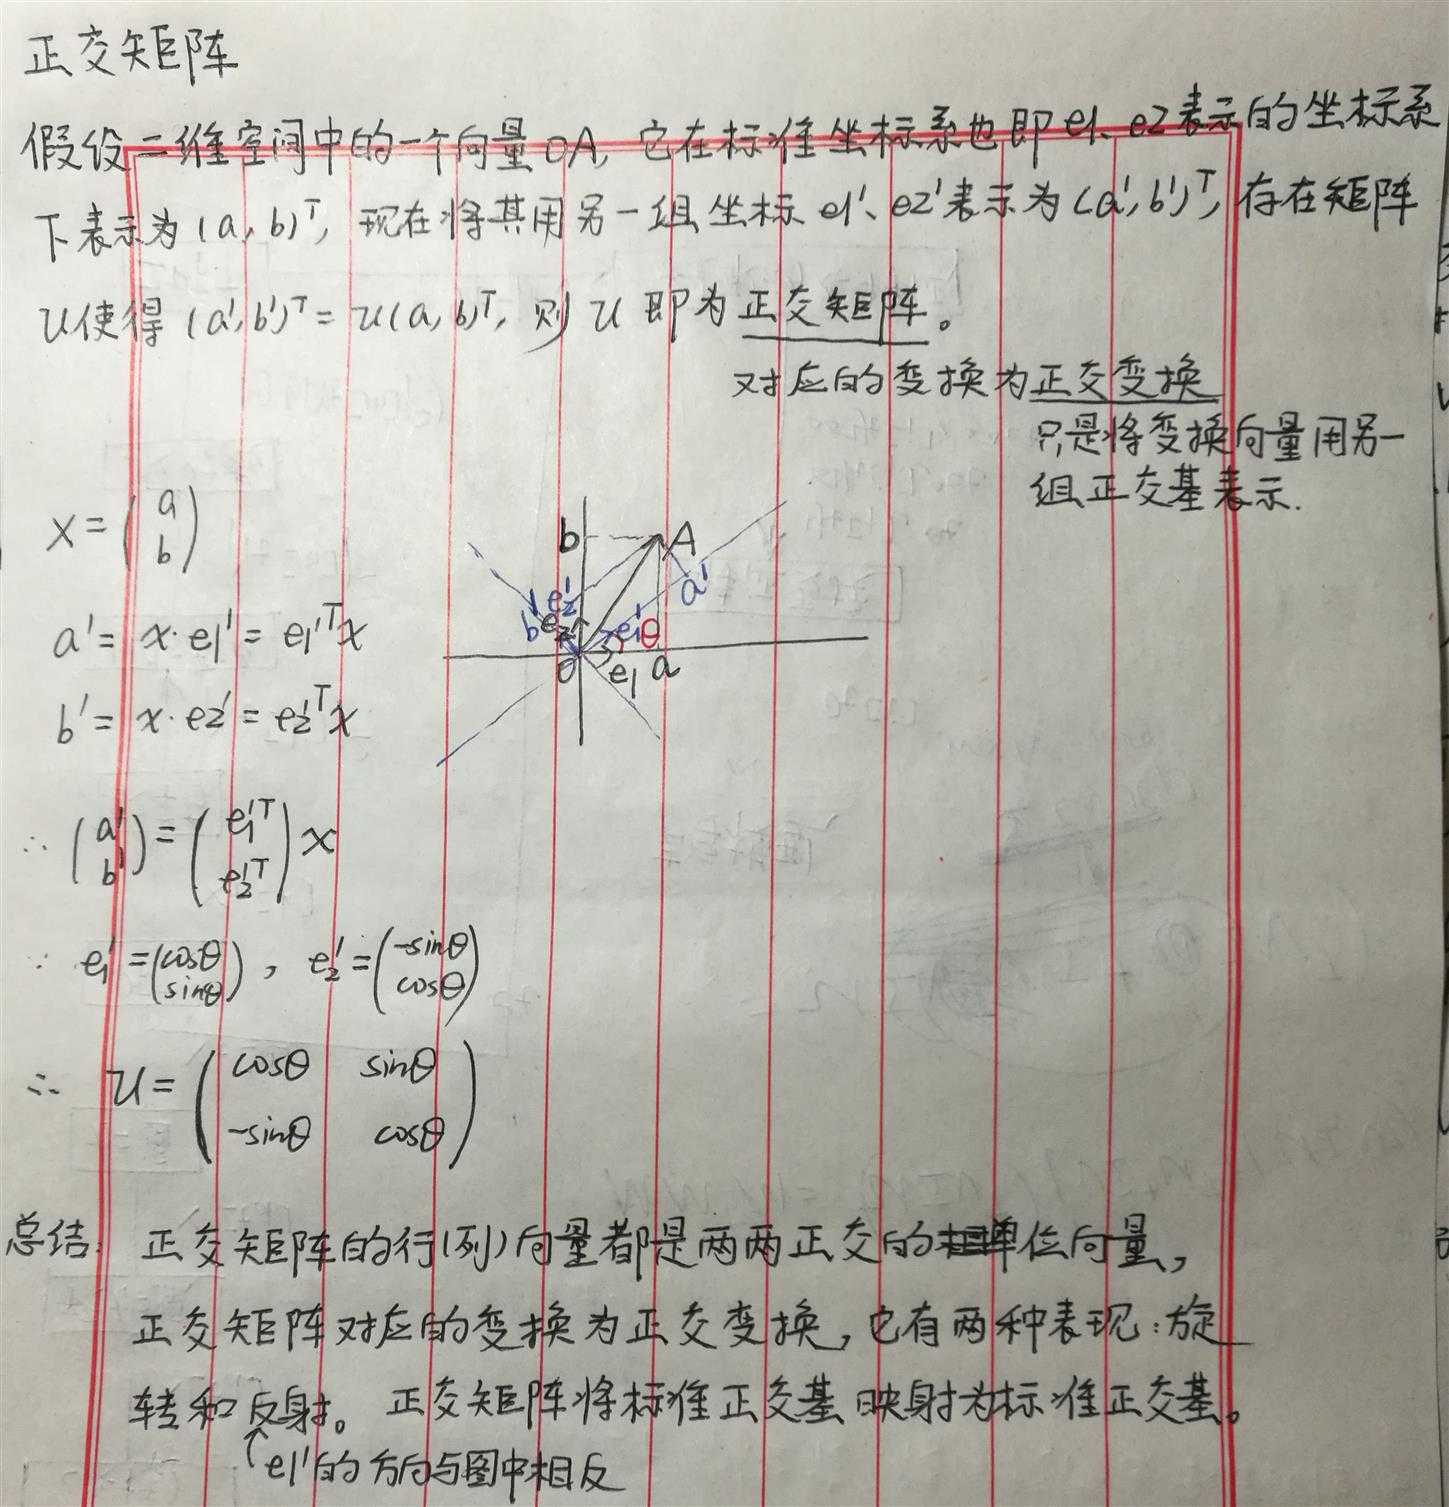 正交矩阵
假设二维空间中的一个向量OA, 它在标准坐标系也即e1、e2表示的坐标系
下表示为(a, b)ᵀ, 现在将其用另一组坐标e1'、e2'表示为(a', b')ᵀ, 存在矩阵
U使得(a', b')ᵀ = U(a, b)ᵀ, 则U即为正交矩阵。
对应的变换为正交变换
只是将变换向量用另一
组正交基表示.
x = (a
b)
b A
a'
e2'
b' e2 e1' θ
O e1 a
a' = x·e1' = e1'ᵀx
b' = x·e2' = e2'ᵀx
∴ (a'
b') = (e1'ᵀ
e2'ᵀ) x
∵ e1' = (cosθ
sinθ), e2' = (-sinθ
cosθ)
∴ U = (cosθ sinθ
-sinθ cosθ)
总结: 正交矩阵的行(列)向量都是两两正交的单位向量,
正交矩阵对应的变换为正交变换, 它有两种表现: 旋
转和反射。正交矩阵将标准正交基映射为标准正交基。
↑e1'的方向与图中相反